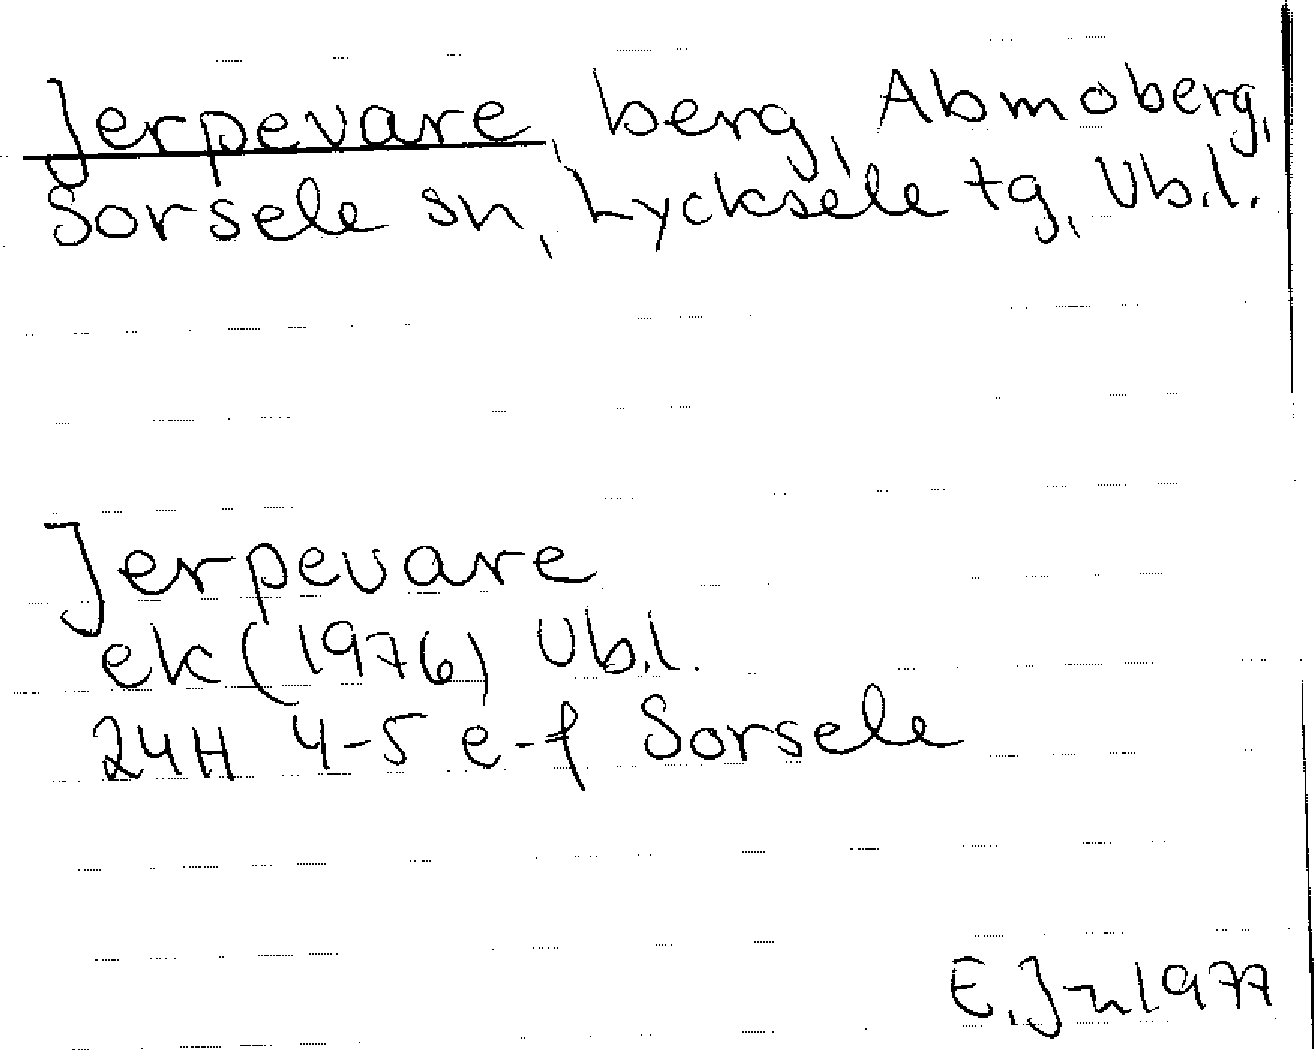 Jerpevare, berg, Abmoberg,
Sorsele sn, Lycksele tg, Vb.l.
Jerpevare
ek (1976) Vb.l.
24H 4-5 e-f Sorsele
E. J-n 1977